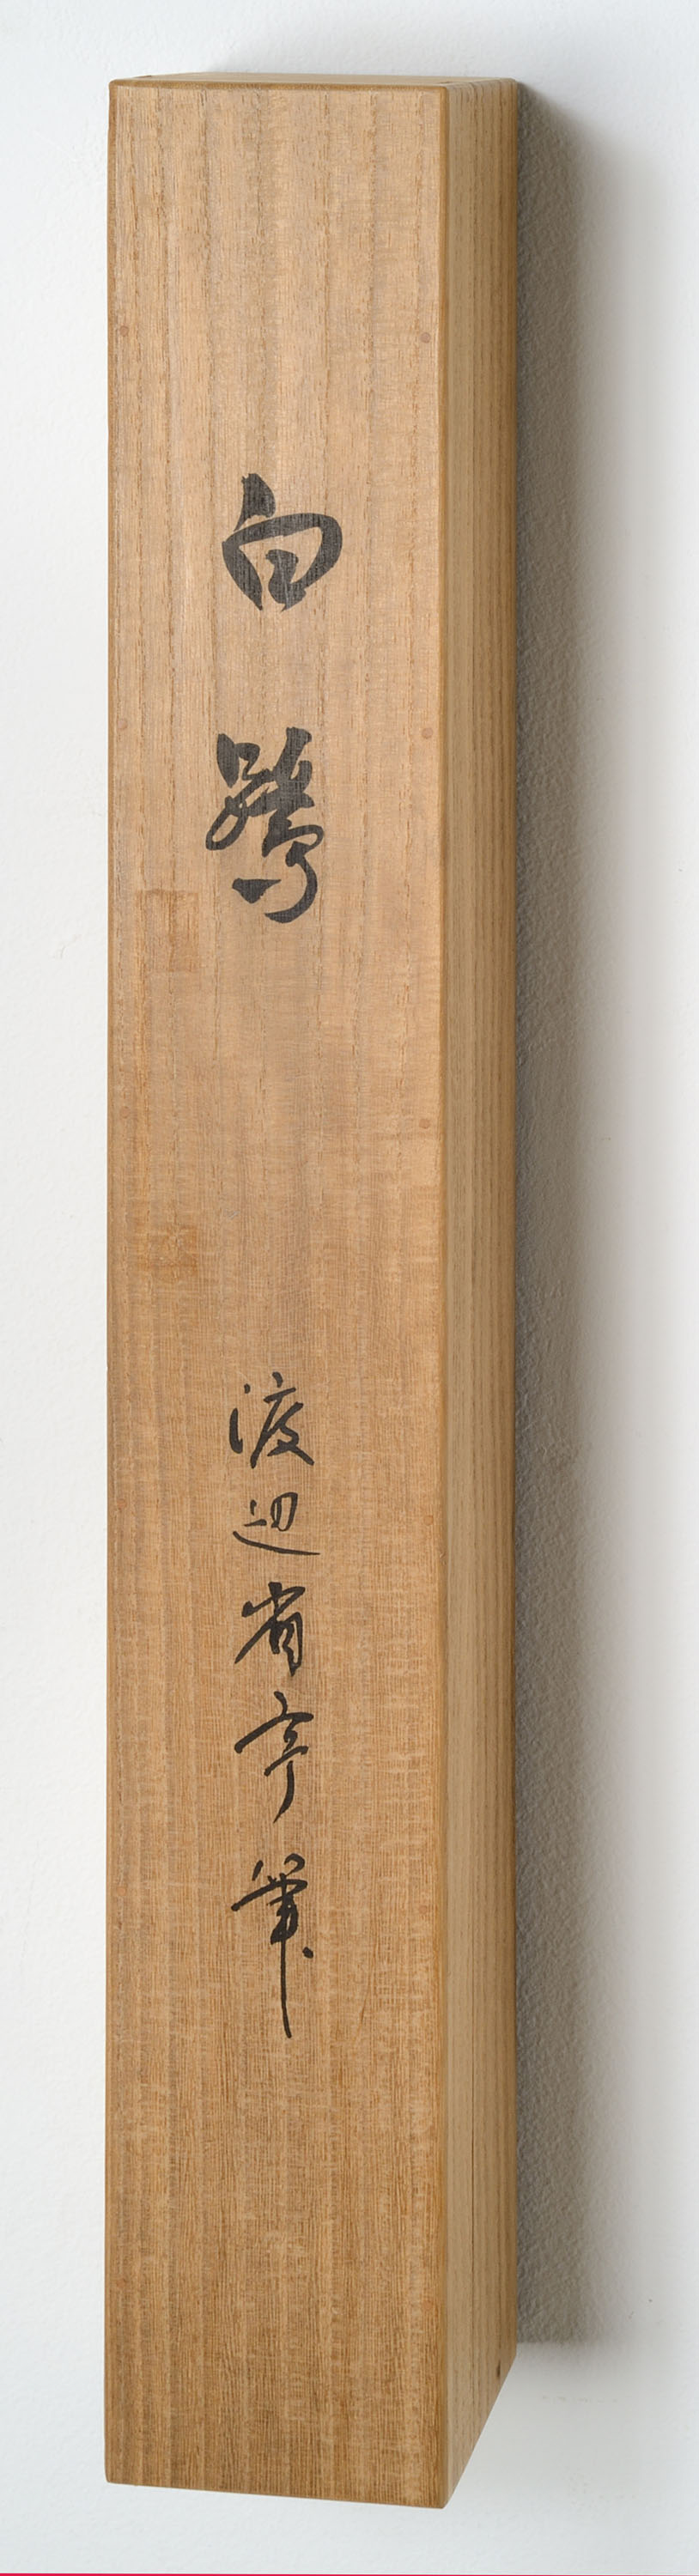 白鷺
渡辺省亭筆